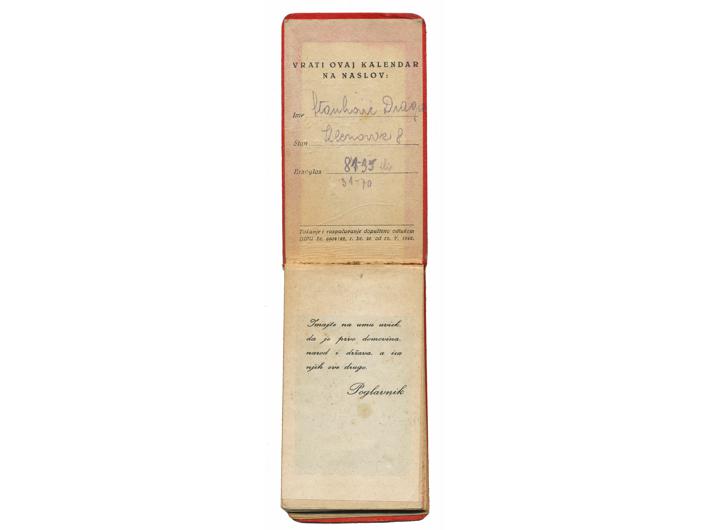 VRATI OVAJ KALENDAR
NA NASLOV:
Ime Stanković Drago
Stan Klenovac 8
Brzoglas 81-35 ili
31-70
Tiskanje i raspačavanje dopušteno odlukom
Imajte na umu uviek,
da je prvo domovina,
narod i država, a iza
njih sve drugo.
Poglavnik